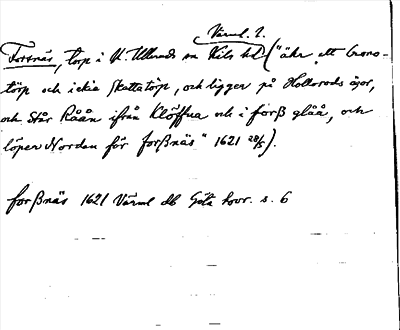 Värml. 2.
Forsnäs, torp i N. Ullerud sn Kils hd ("ähr ett Crono-
törp och ickie skattatörp, och ligger på Hollerods ägor,
och Står Råån ifrån Klöffua och i forß glåå, och
löper Norden för forßnäs" 1621 28/5).
forßnäs 1621 Värml db Göta hovr. s. 6